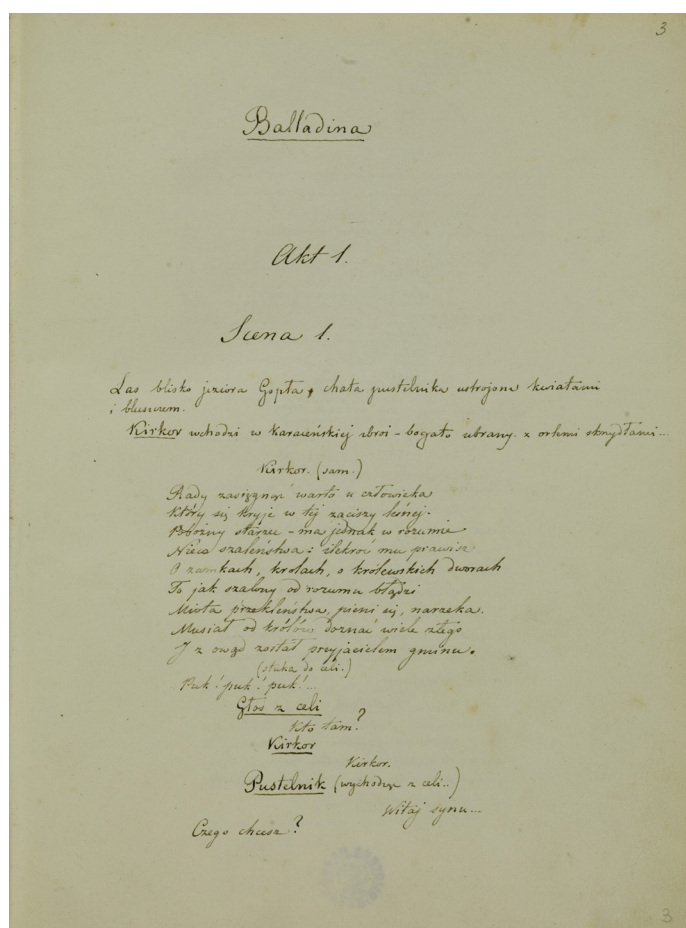 3
Balladina
Akt 1.
Scena 1.
Las blisko jeziora Gopła, chata pustelnika ustrojona kwiatami
i bluszczem.
Kirkor wchodzi w karaceńskiej zbroi – bogato ubrany. z orlemi skrzydłami...
Kirkor. (sam.)
Rady zasięgnąć warto u człowieka
Który się kryje w tej zaciszy leśnej.
Pobożny starzec – ma jednak w rozumie
Nieco szaleństwa: ilekroć mu prawisz
O zamkach, krolach, o królewskich dworach
To jak szalony od rozumu błądzi
Miota przekleństwa, pieni się, narzeka.
Musiał od królów doznać wiele złego
I z owąd został przyjacielem gminu.
(stuka do celi.)
Puk! puk! puk!...
Głos z celi
Kto tam?
Kirkor
Kirkor.
Pustelnik (wychodząc z celi..)
Witaj synu...
Czego chcesz?
3